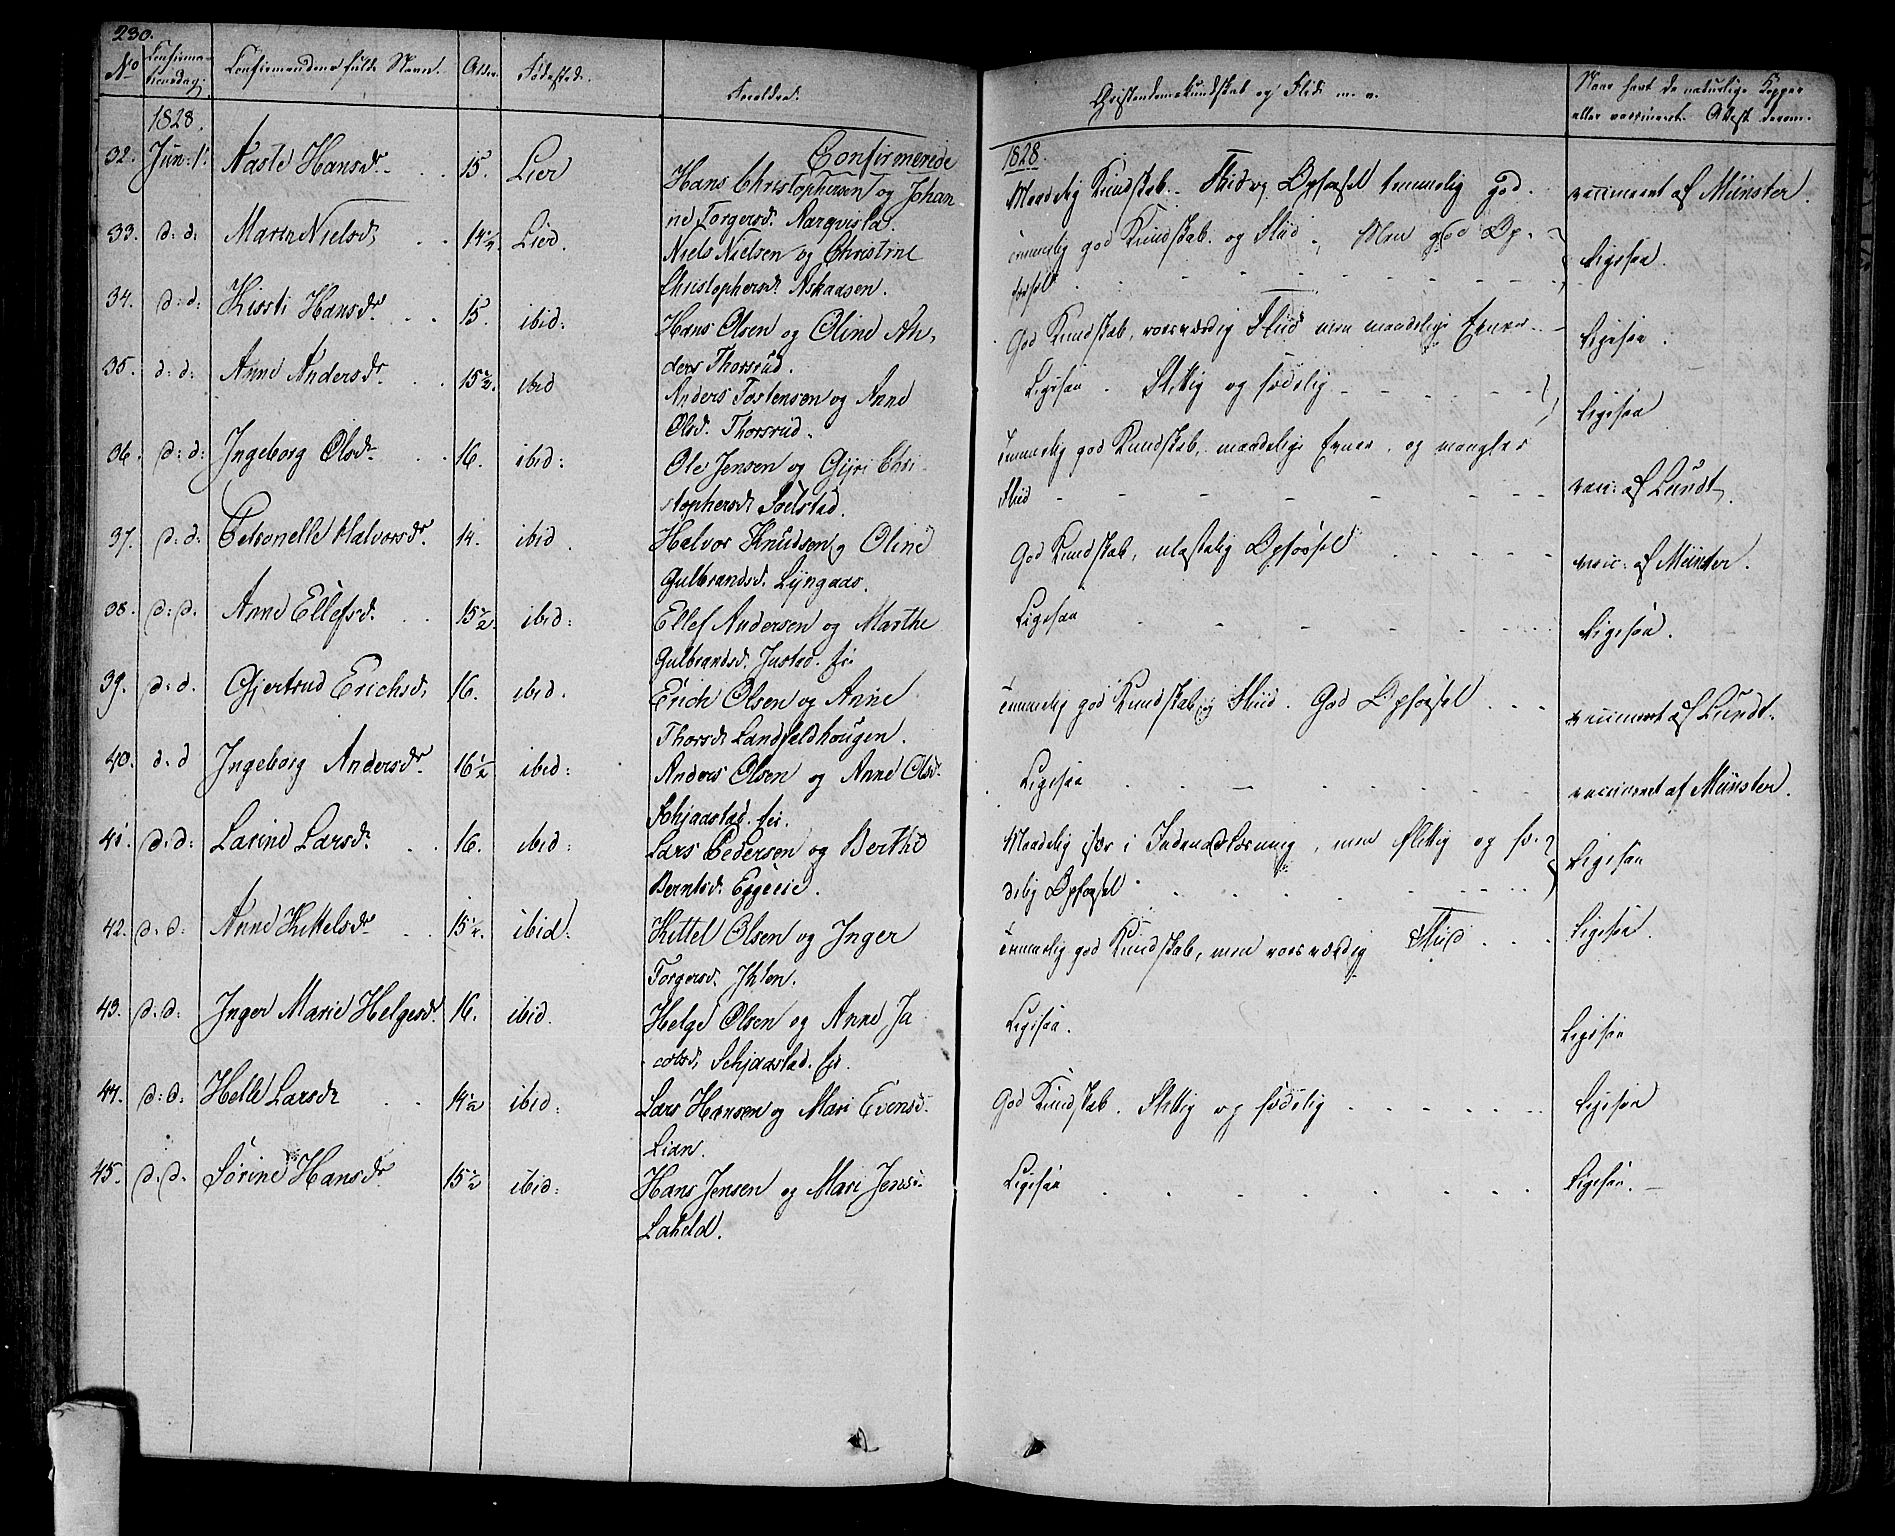 230.
No Confirmationsdag. Confirmandens fulde Navn. Alder. Fødested. Forældre. Christendomskundskab og Flid m. v. Naar havt de naturlige Kopper
eller vaccineret. Attest derom.
1828. Confirmerede 1828.
32. Jun: 1. Aaste Hansdr. 15. Lier Hans Christophersen og Johan Maadelig Kundskab. Flid og Opførsel temmelig god. vaccineret af Münster.
ne Torgersd. Narqvista.
33. d: d: Maren Nielsd. 14½ Lier. Niels Nielsen og Christine temmelig god Kundskab og Fliid. Men god Op- Ligesaa.
Christophersd. Askaasen. førsel
34. d: d: Kirsti Hansdr. 15. ibid: Hans Olsen og Oline An, God Kundskab, roesværdig Fliid men maadelige Evner. Ligesaa.
ders Thorsrud.
35. d: d: Anne Andersdr. 15½. ibid Anders Torstensen og Anne Ligesaa. Flittig og sædelig Ligesaa
Olsd. Thorsrud.
36. d: d: Ingeborg Olsdr. 16. ibid: Ole Jensen og Gjøri Chri- temmelig god Kundskab, maadelige Evner, og mangler vacc: af Lundt.
stophersd. Foelstad. Fliid
37. d: d. Petronelle Halvorsdr. 14. ibid. Halvor Knudsen og Oline God Kundskab, ulastelig Opførsel vacc: af Münster.
Gulbrandsd. Lyngaas.
38. d: d. Anne Ellefsd. 15½. ibid: Ellef Andersen og Marthe Ligesaa Ligesaa.
Gulbrandsd. Justad. ei.
39. d: d. Gjertrud Erichsd. 16. ibid. Erich Olsen og Anne temmelig god Kundskab og Fliid. God Opførsel vaccineret af Lundt.
Thorsd. Landfaldhougen.
40. d. d Ingeborg Andersdr. 16½ ibid: Anders Olsen og Anne Olsd. Ligesaa vaccineret af Münster.
Schjaastad. ei.
41. d. d: Larine Larsdr. 16. ibid: Lars Pedersen og Berthe Maadelig især i Indenadslæsning, men flittig og sæ- Ligesaa
Berntsd. Eggeeie. delig Opførsel
42. d. d. Anne Kittelsdr. 15½. ibid. Kittel Olsen og Inger temmelig god Kundskab, men roesværdig Fliid Ligesaa.
Torgersd. Ihlen.
43. d. d: Inger Marie Helgesdr. 16. ibid. Helge Olsen og Anne Ja Ligesaa. Ligesaa
cobsd. Schjaastad. ei.
44. d: d: Helle Larsdr 14½ ibid: Lars Hansen og Mari Evensd. God Kundskab. Flittig og sædelig Ligesaa
Lian.
45. d. d. Sørine Hansdr. 15½ ibid: Hans Jensen og Mari Jensd. Ligesaa Ligesaa.
Laheld.